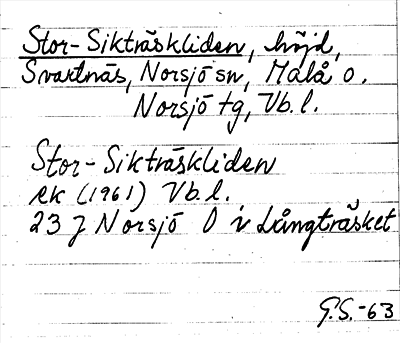 Stor-Sikträskliden, höjd,
Svartnäs, Norsjö sn, Malå o.
Norsjö tg, Vb.l.
Stor-Sikträskliden
ek (1961) Vb.l.
23 J Norsjö O iv Långträsket
G.S.-63